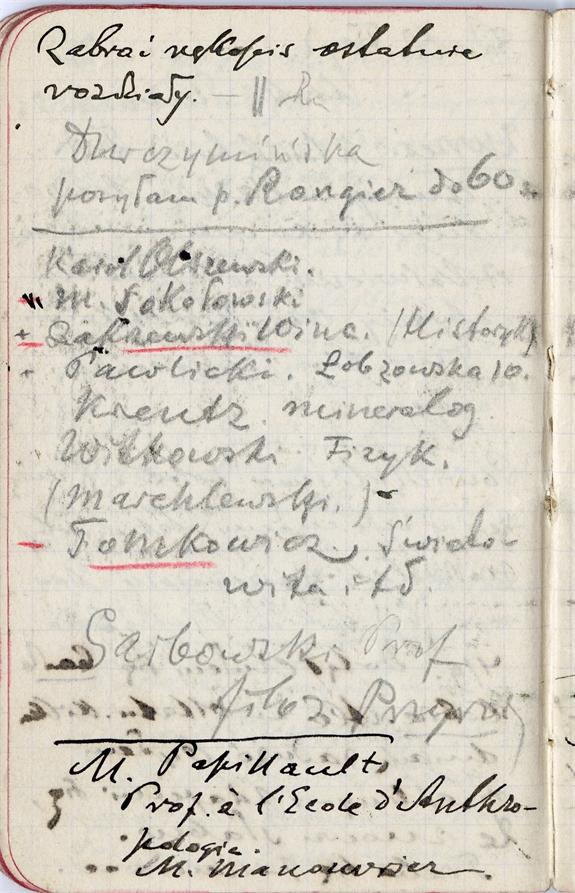 Zabrać rękopis ostatnie
rozdziały. — ||
Durczymińska
posyłam p. Rongier do 60
Karol Olszewski.
M. Sokołowski
+ Zakrzewski Winc. (Historyk)
- Pawlicki. Lobzowska 10.
Kreutz. mineralog
Witkowski Fizyk.
(Marchlewski.)
- Tomkowicz. Świato-
wita i td.
Garbowski Prof
filoz
M. Papillault
Prof. à l'Ecole d'Anthro-
pologie.
M. Manouvrier